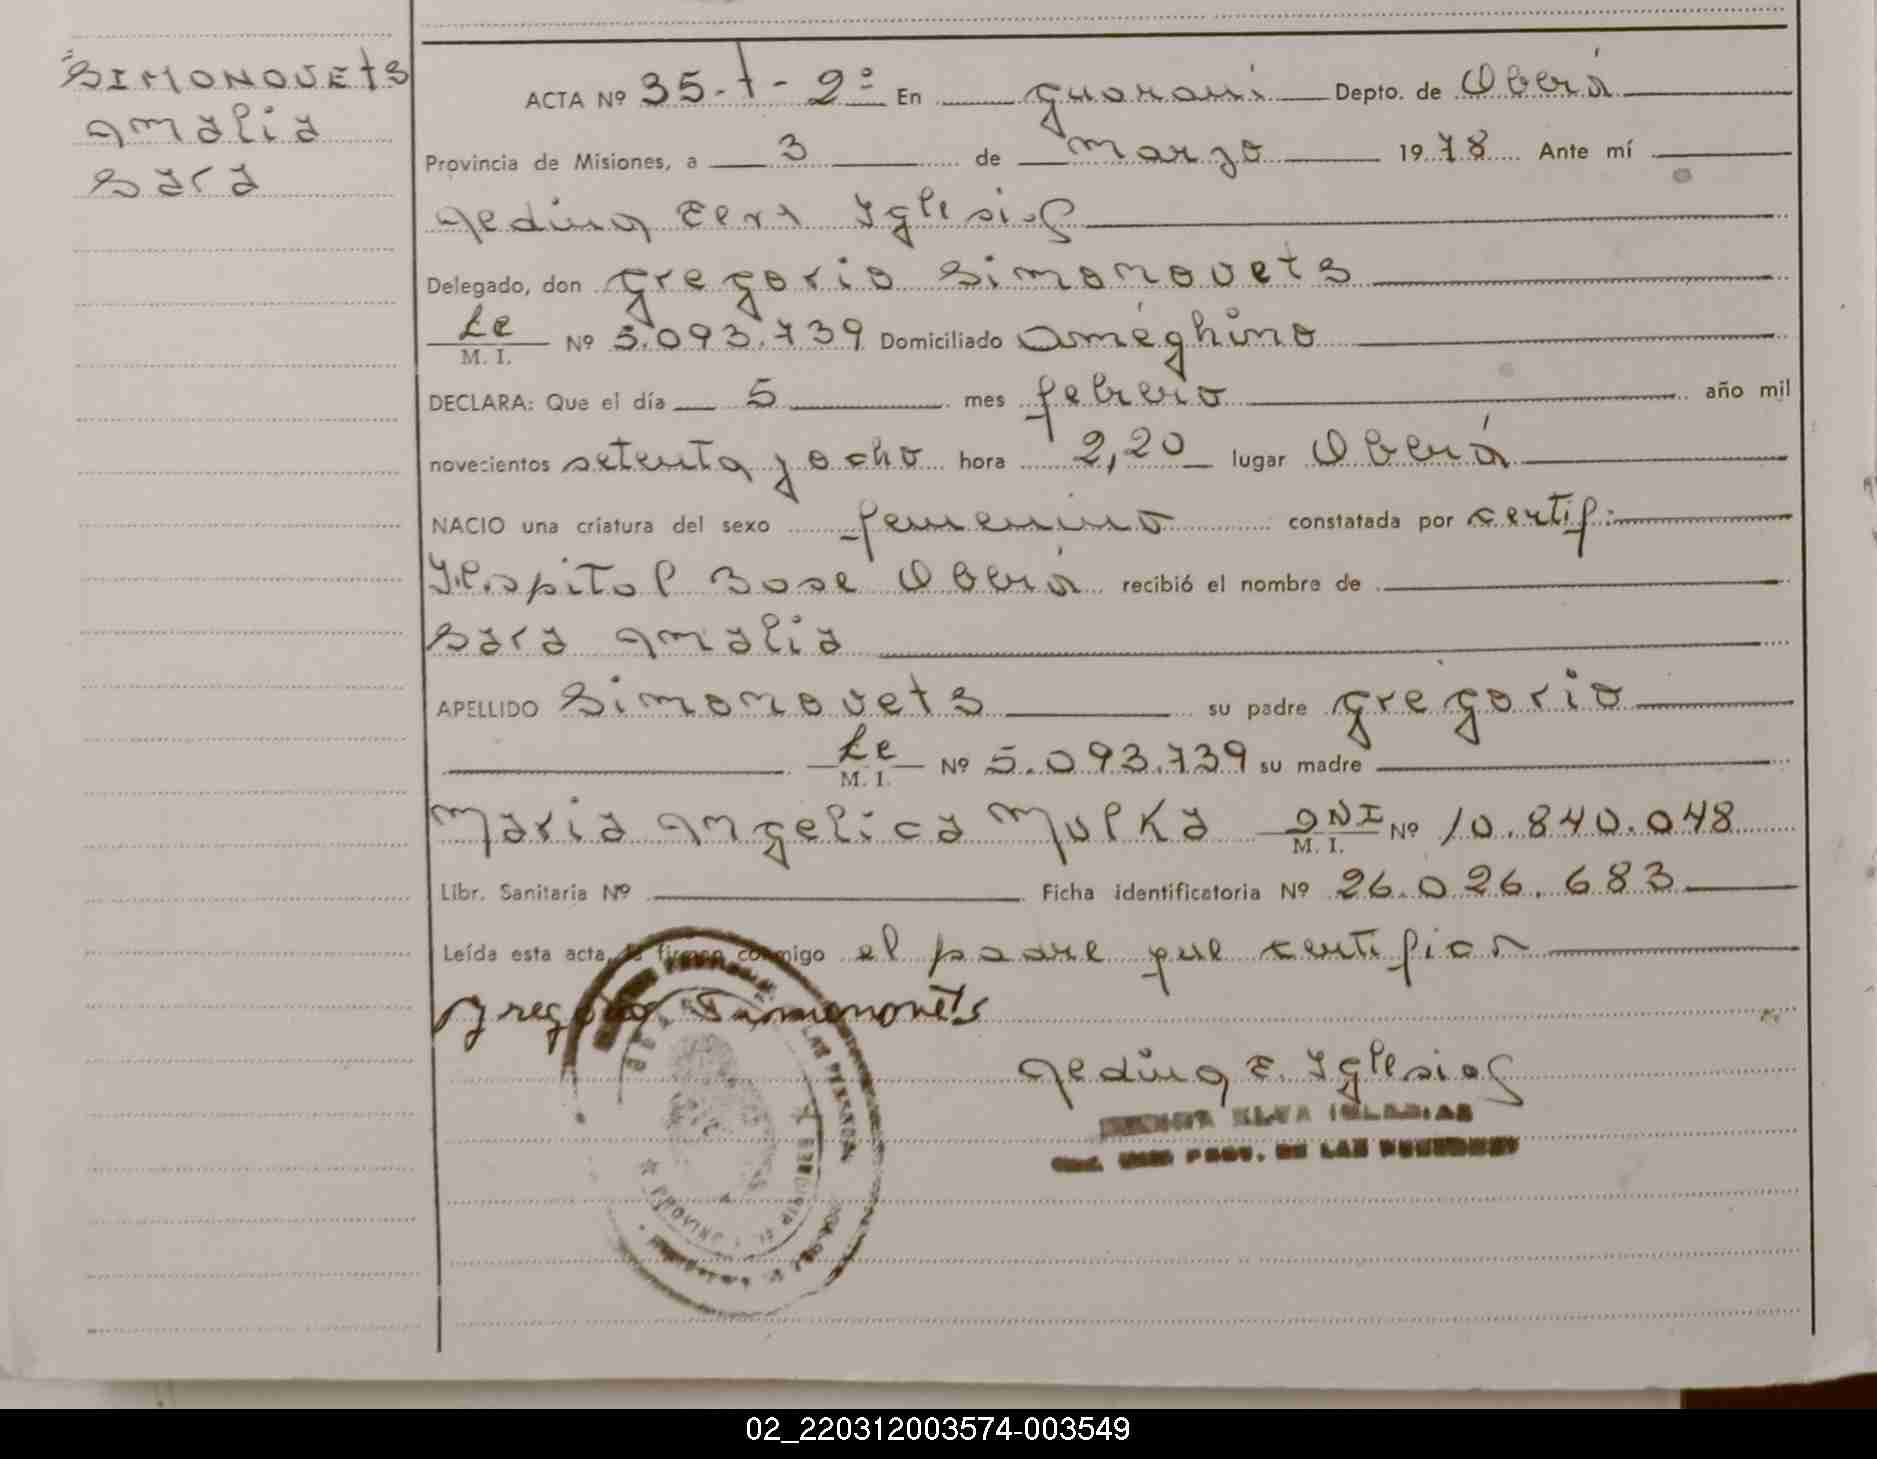 SIMONOVETS
Amalia
Sara
ACTA Nº 35-1-2º En Guaraní Depto. de Oberá
Provincia de Misiones, a 3 de marzo 1978 Ante mí
Iglesias
Delegado, don Gregorio Simonovets
Le M. I. Nº 5.093.739 Domiciliado Améghino
DECLARA: Que el día 5 mes febrero año mil
novecientos setenta y ocho hora 2,20 lugar Oberá
NACIO una criatura del sexo femenino constatada por certif:
Hospital Base Oberá recibió el nombre de
Sara Amalia
APELLIDO Simonovets su padre Gregorio
Le M. I. Nº 5.093.739 su madre
Maria Angelica Mulka DNI M. I. Nº 10.840.048
Libr. Sanitaria Nº Ficha identificatoria Nº 26.026.683
Leída esta acta, la firman conmigo el padre que certifica
Gregorio Simonovets
E. Iglesias
ELVA IGLESIAS
02_220312003574-003549